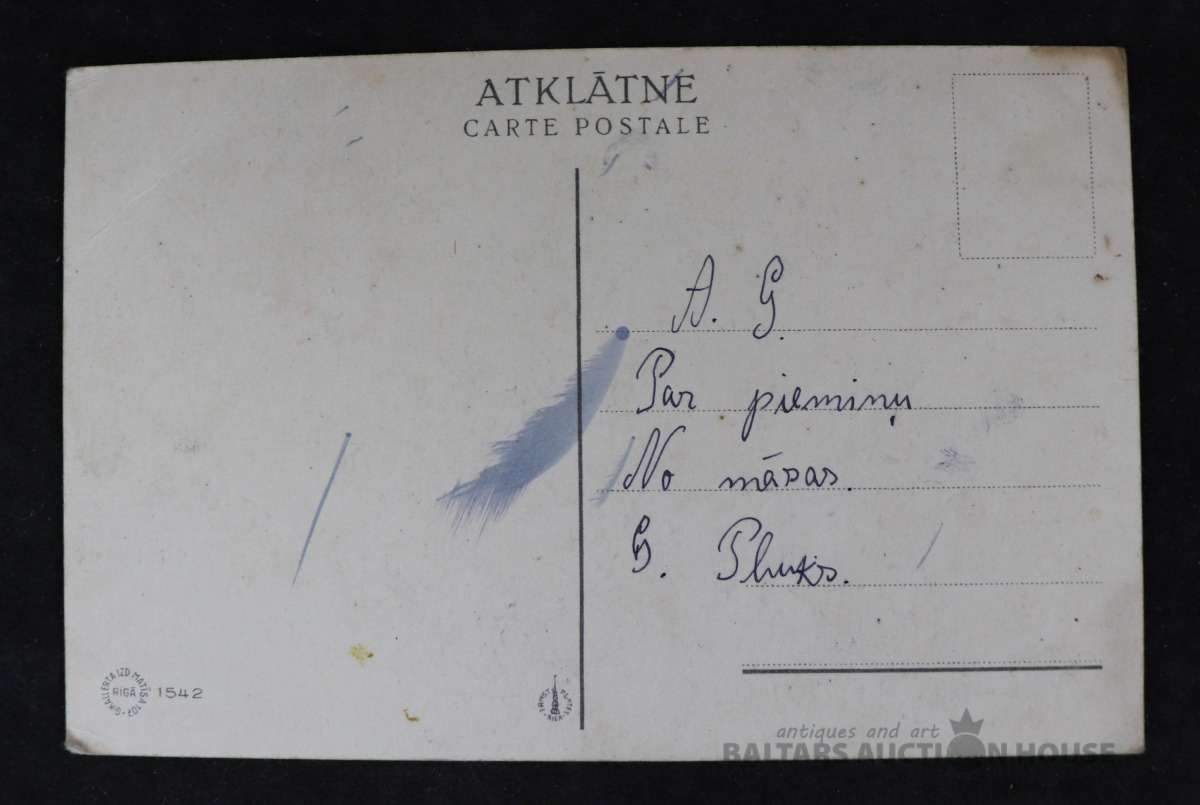 ATKLĀTNE
CARTE POSTALE
A. G.
Par pieminu
No māsas.
G.
G. KALLERTA IZD. MATĪSA 107
RIGĀ
1542
ERNST PLATES
RIGA
antiques and art
BALTARS AUCTION HOUSE